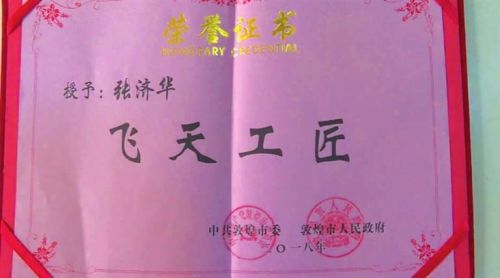 荣誉证书
HONORARY CREDENTIAL
授予：张济华
飞天工匠
中共敦煌市委 敦煌市人民政府
二〇一八年